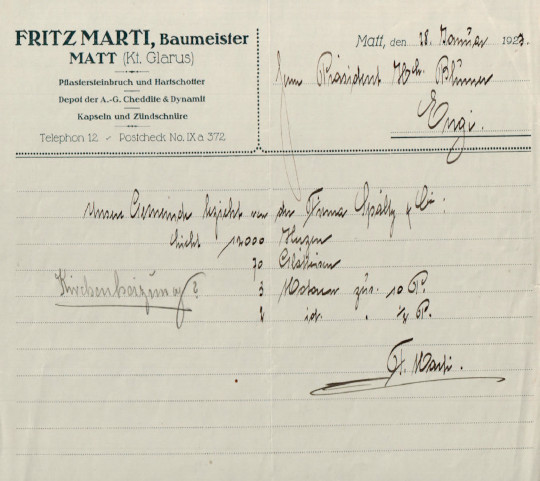 FRITZ MARTI, Baumeister
MATT (Kt. Glarus)
Pflastersteinbruch und Hartschotter
Depot der A.-G. Cheddite & Dynamit
Kapseln und Zündschnüre
Telephon 12 - Postcheck No. IX a 372
Matt, den 28. Januar 1923.
Herrn Präsident Hch. Blumer
Engi.
Unsere Gemeinde bezieht von der Firma Spälty & Cie:
12000 Kerzen
70
Kirchenheizung? 3 Motoren zus. 10 P.
2 id. " 1/8 P.
Fr. Marti.